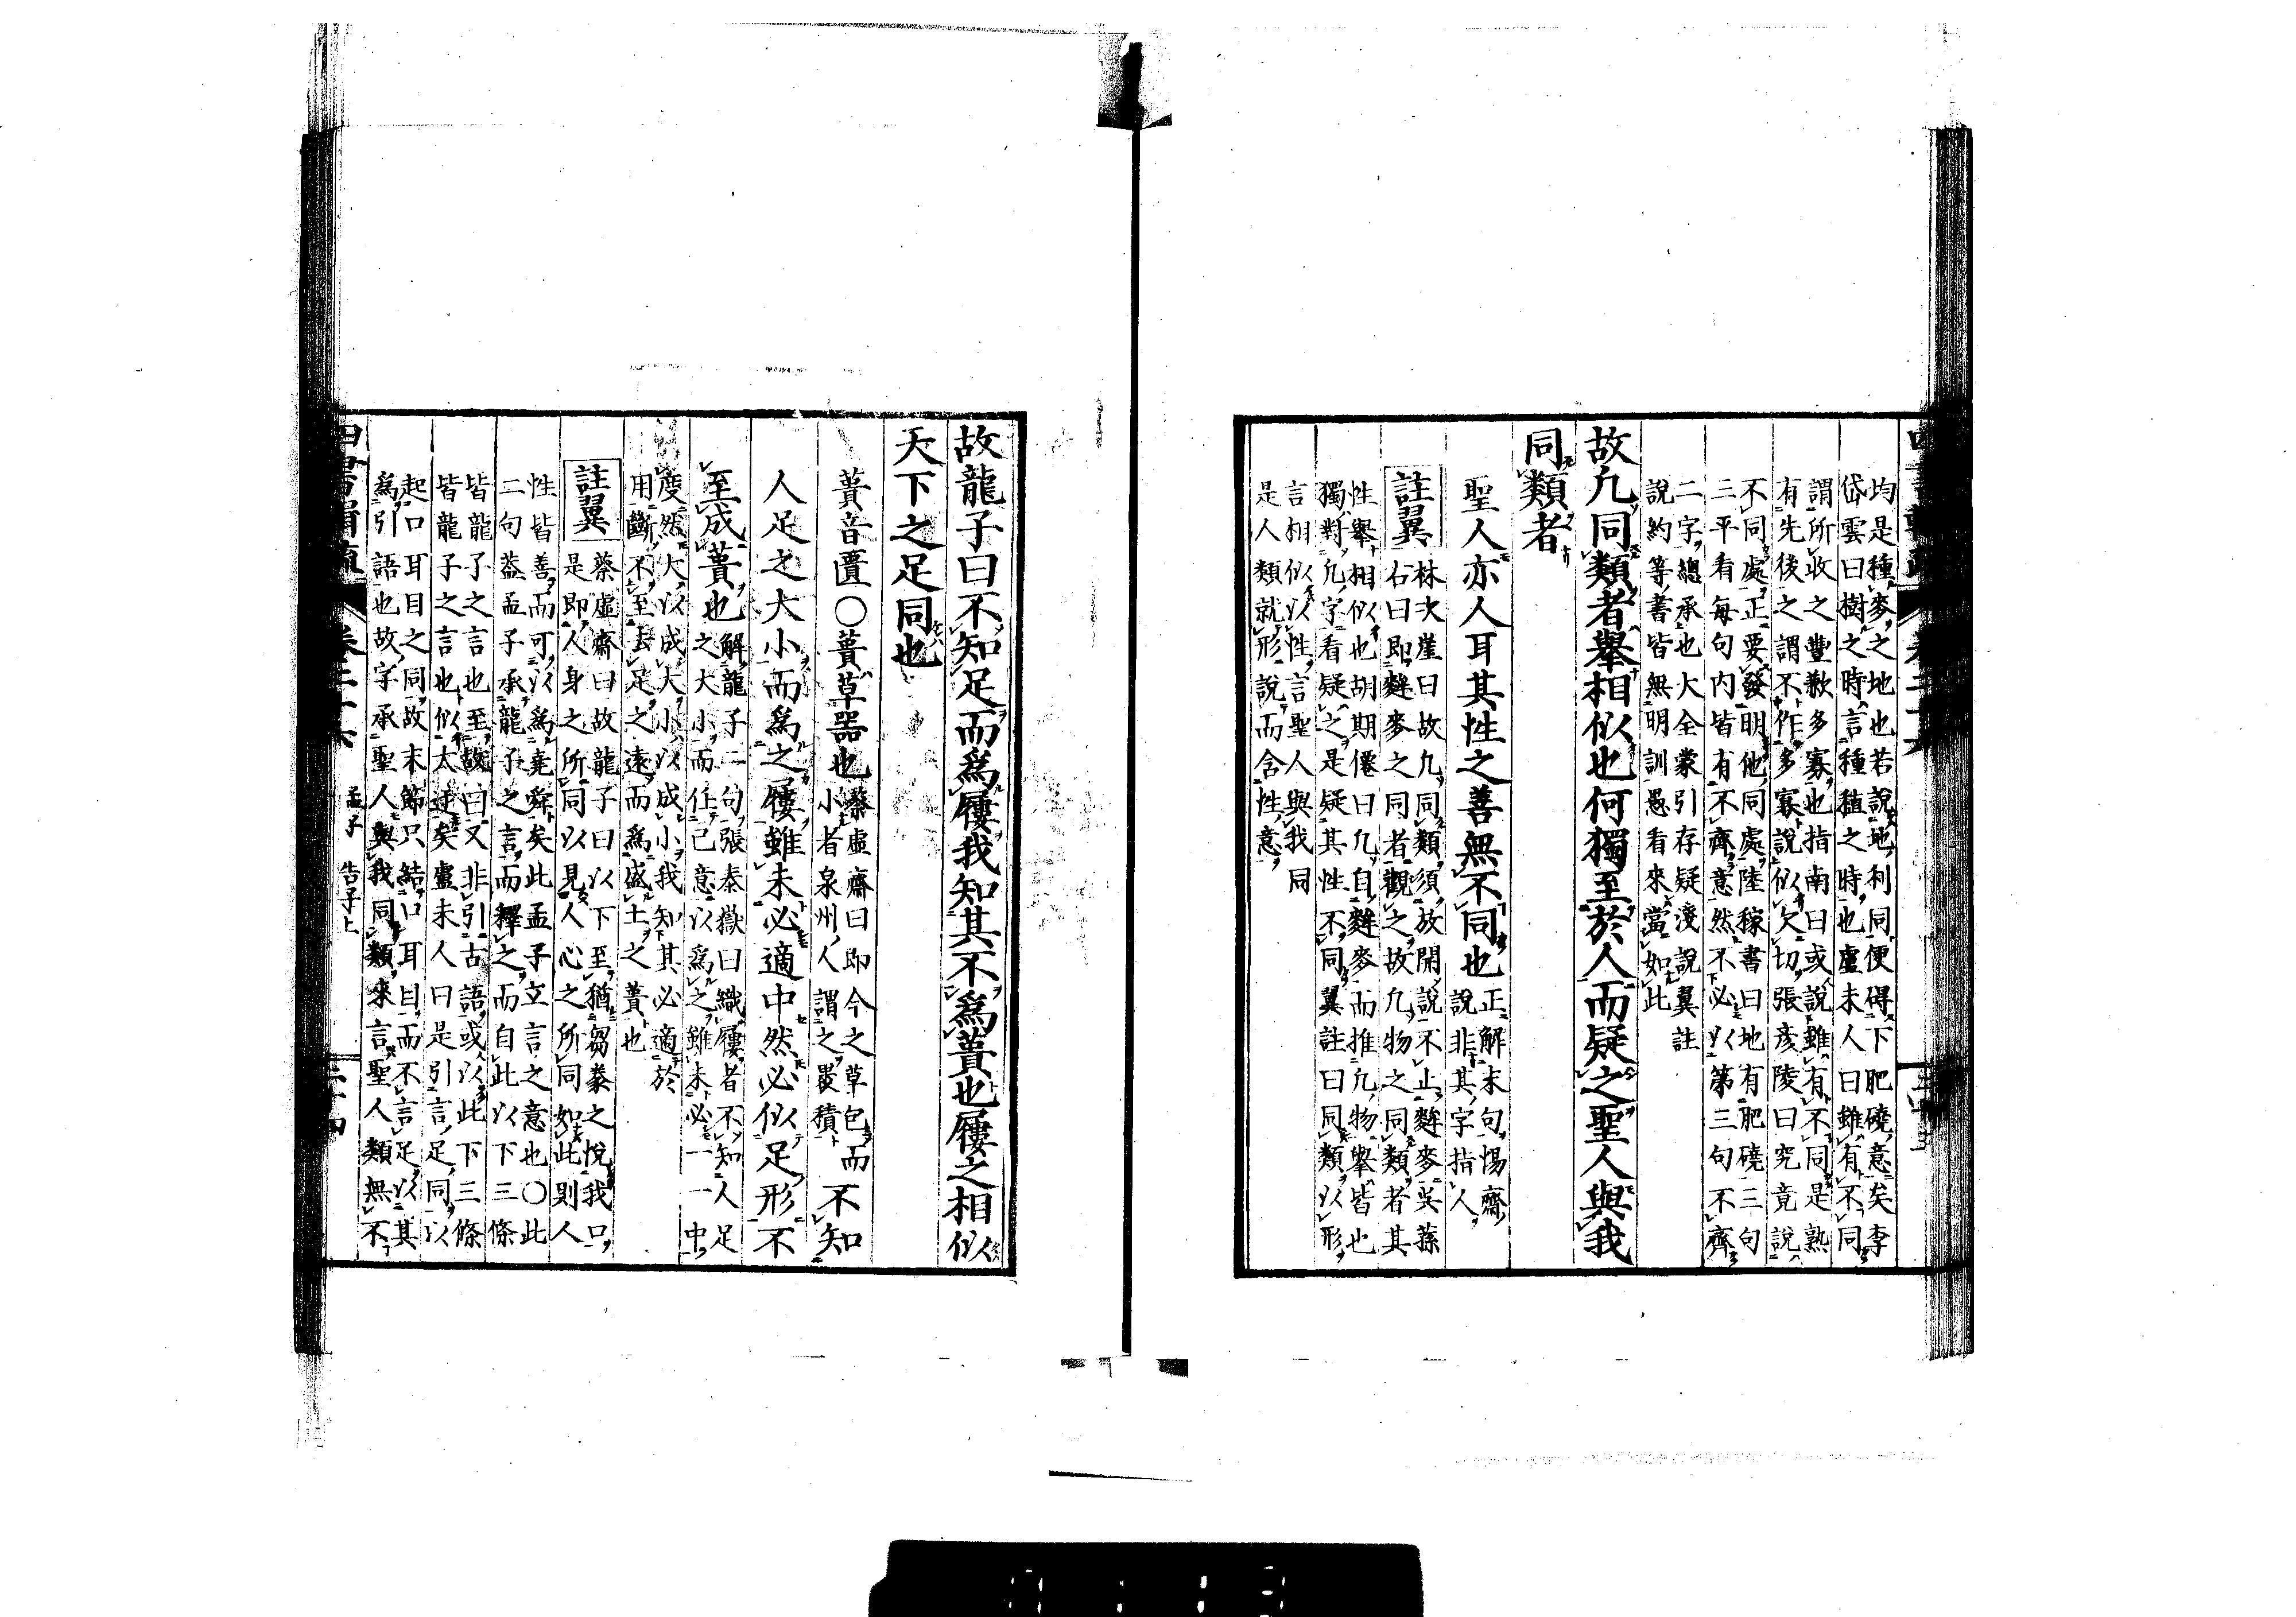 均是種麥之地也若說地利同便碍下肥磽意矣李
岱雲曰樹之時言種植之時也盧未人曰雖有不同
謂所收之豐歉多寡也指南曰或說雖有不同是熟
有先後之謂不作多寡說似欠切張彥陵曰究竟說
不同處正要發明他同處陸稼書曰地有肥磽三句
三平看每句內皆有不齊意然不必以第三句不齊
二字總承也大全蒙引存疑淺說翼註
說約等書皆無明訓愚看來當如此
故凡同類者舉相似也何獨至於人而疑之聖人與我
同類者
聖人亦人耳其性之善無不同也
正解末句惕齋
說非其字指人
註翼
林次崖曰故凡同類須故開說不止麰麥吳蓀
右曰即麰麥之同者觀之故凡物之同類者其
性舉相似也胡期僊曰凡自麰麥而推凡物舉皆也
獨對凡字看疑之是疑其性不同翼註曰同類以形
言相似以性言聖人與我同
是人類就形說而含性意
故龍子曰不知足而爲屨我知其不爲蕢也屨之相似
天下之足同也
蕢音匱○蕢草器也
蔡虛齋曰即今之草包而
小者泉州人謂之裝積
不知
人足之大小而爲之屨雖未必適中然必似足形不
至成蕢也
解龍子二句張泰嶽曰織屨者不知人足
之大小而任己意以爲之雖未必一一中
度然大以成大小以成小我知其必適於
用斷不至去足之遠而爲盛土之蕢也
註翼
蔡虛齋曰故龍子曰以下至猶芻豢之悅我口
是即人身之所同以見人心之所同如此則人
性皆善而可以爲堯舜矣此孟子立言之意也○此
二句蓋孟子承龍子之言而釋之而自此以下三條
皆龍子之言也至故曰又非引古語或以此下三條
皆龍子之言也似太迂矣盧未人曰是引言足同以
起口耳目之同故末節只結口耳目而不言足以其
爲引語也故字承聖人與我同類來言聖人類無不
孟子 告子上